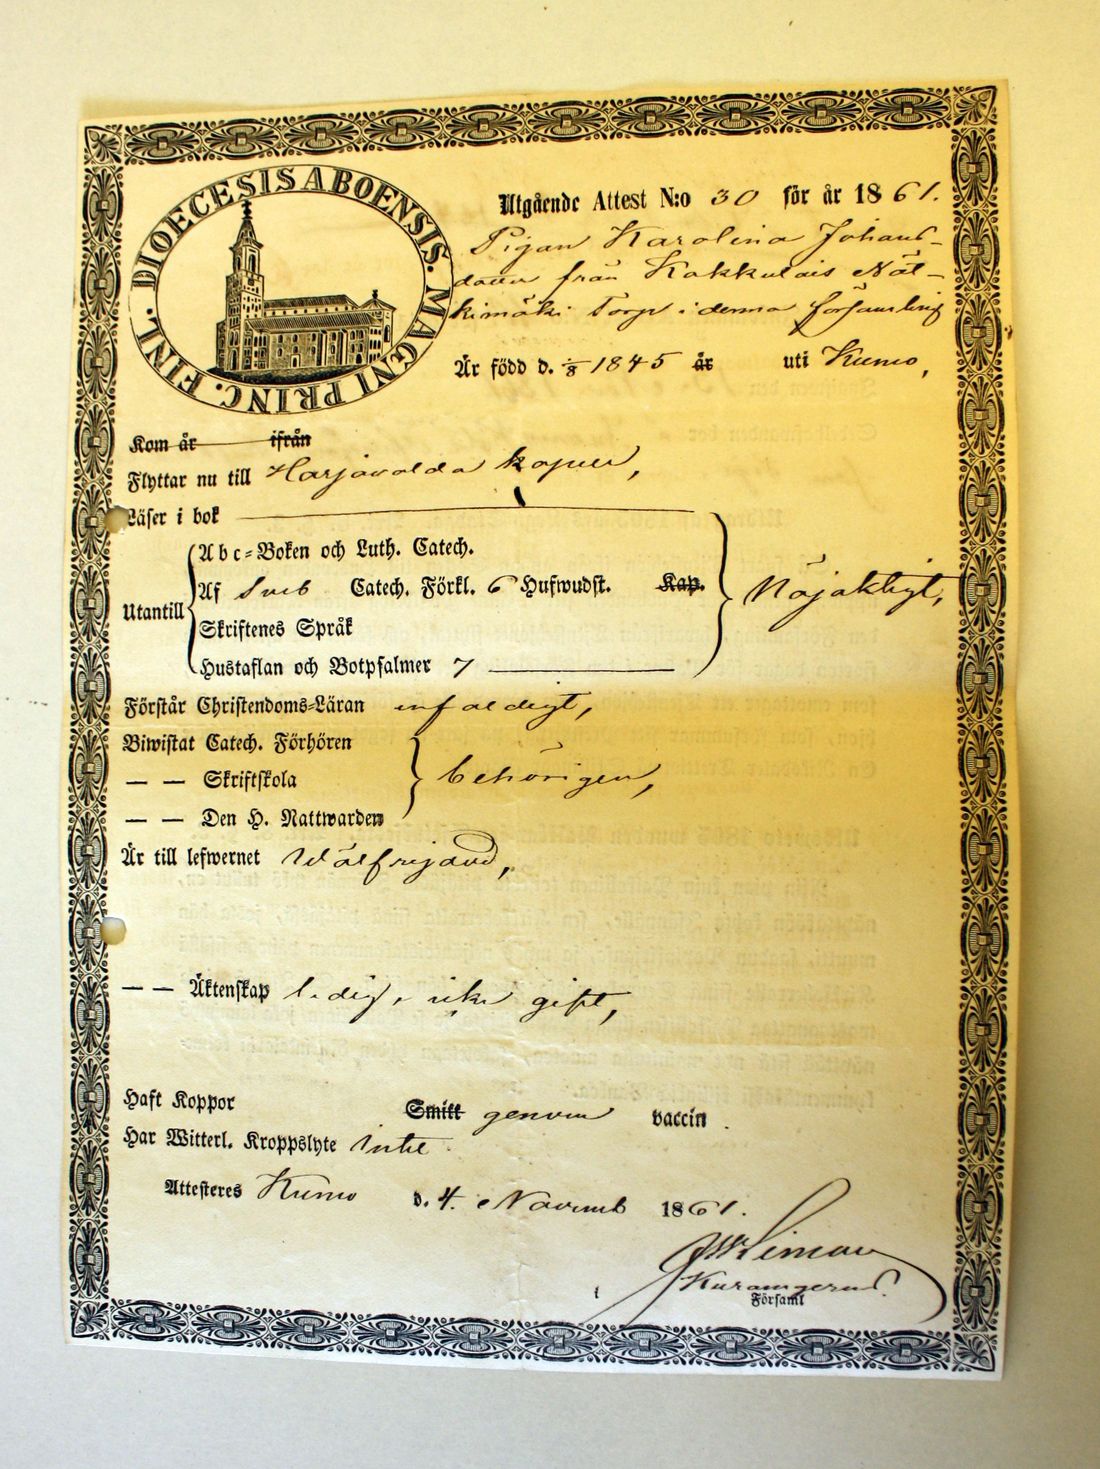 DIOECESIS ABOENSIS. MAGNI PRINC. FINL.
Utgående Attest N:o 30 för år 1861.
Pigan Karolina Johans-
dotter från Kakkulais Näl-
kimäki Torp i denna församling
Är född d. 1/8 1845 år uti Kumo,
Kom år ifrån
Flyttar nu till Harjavalda kapell,
Läser i bok
Abc=Boken och Luth. Catech.
Utantill Af Sveb Catech. Förkl. 6 Hufwudst. Kap. Nöjaktigt,
Skriftenes Språk
Hustaflan och Botpsalmer 7
Förstår Christendoms=Läran enfaldigt,
Biwistat Catech. Förhören
— — Skriftskola behörigen,
— — Den H. Nattwarden
Är till lefwernet Wälfrejdad,
— — Äktenskap ledig, icke gift,
Haft Koppor Smitt genom vaccin.
Har Witterl. Kroppslyte intet.
Attesteres Kumo d. 4. Novemb 1861.
Församl